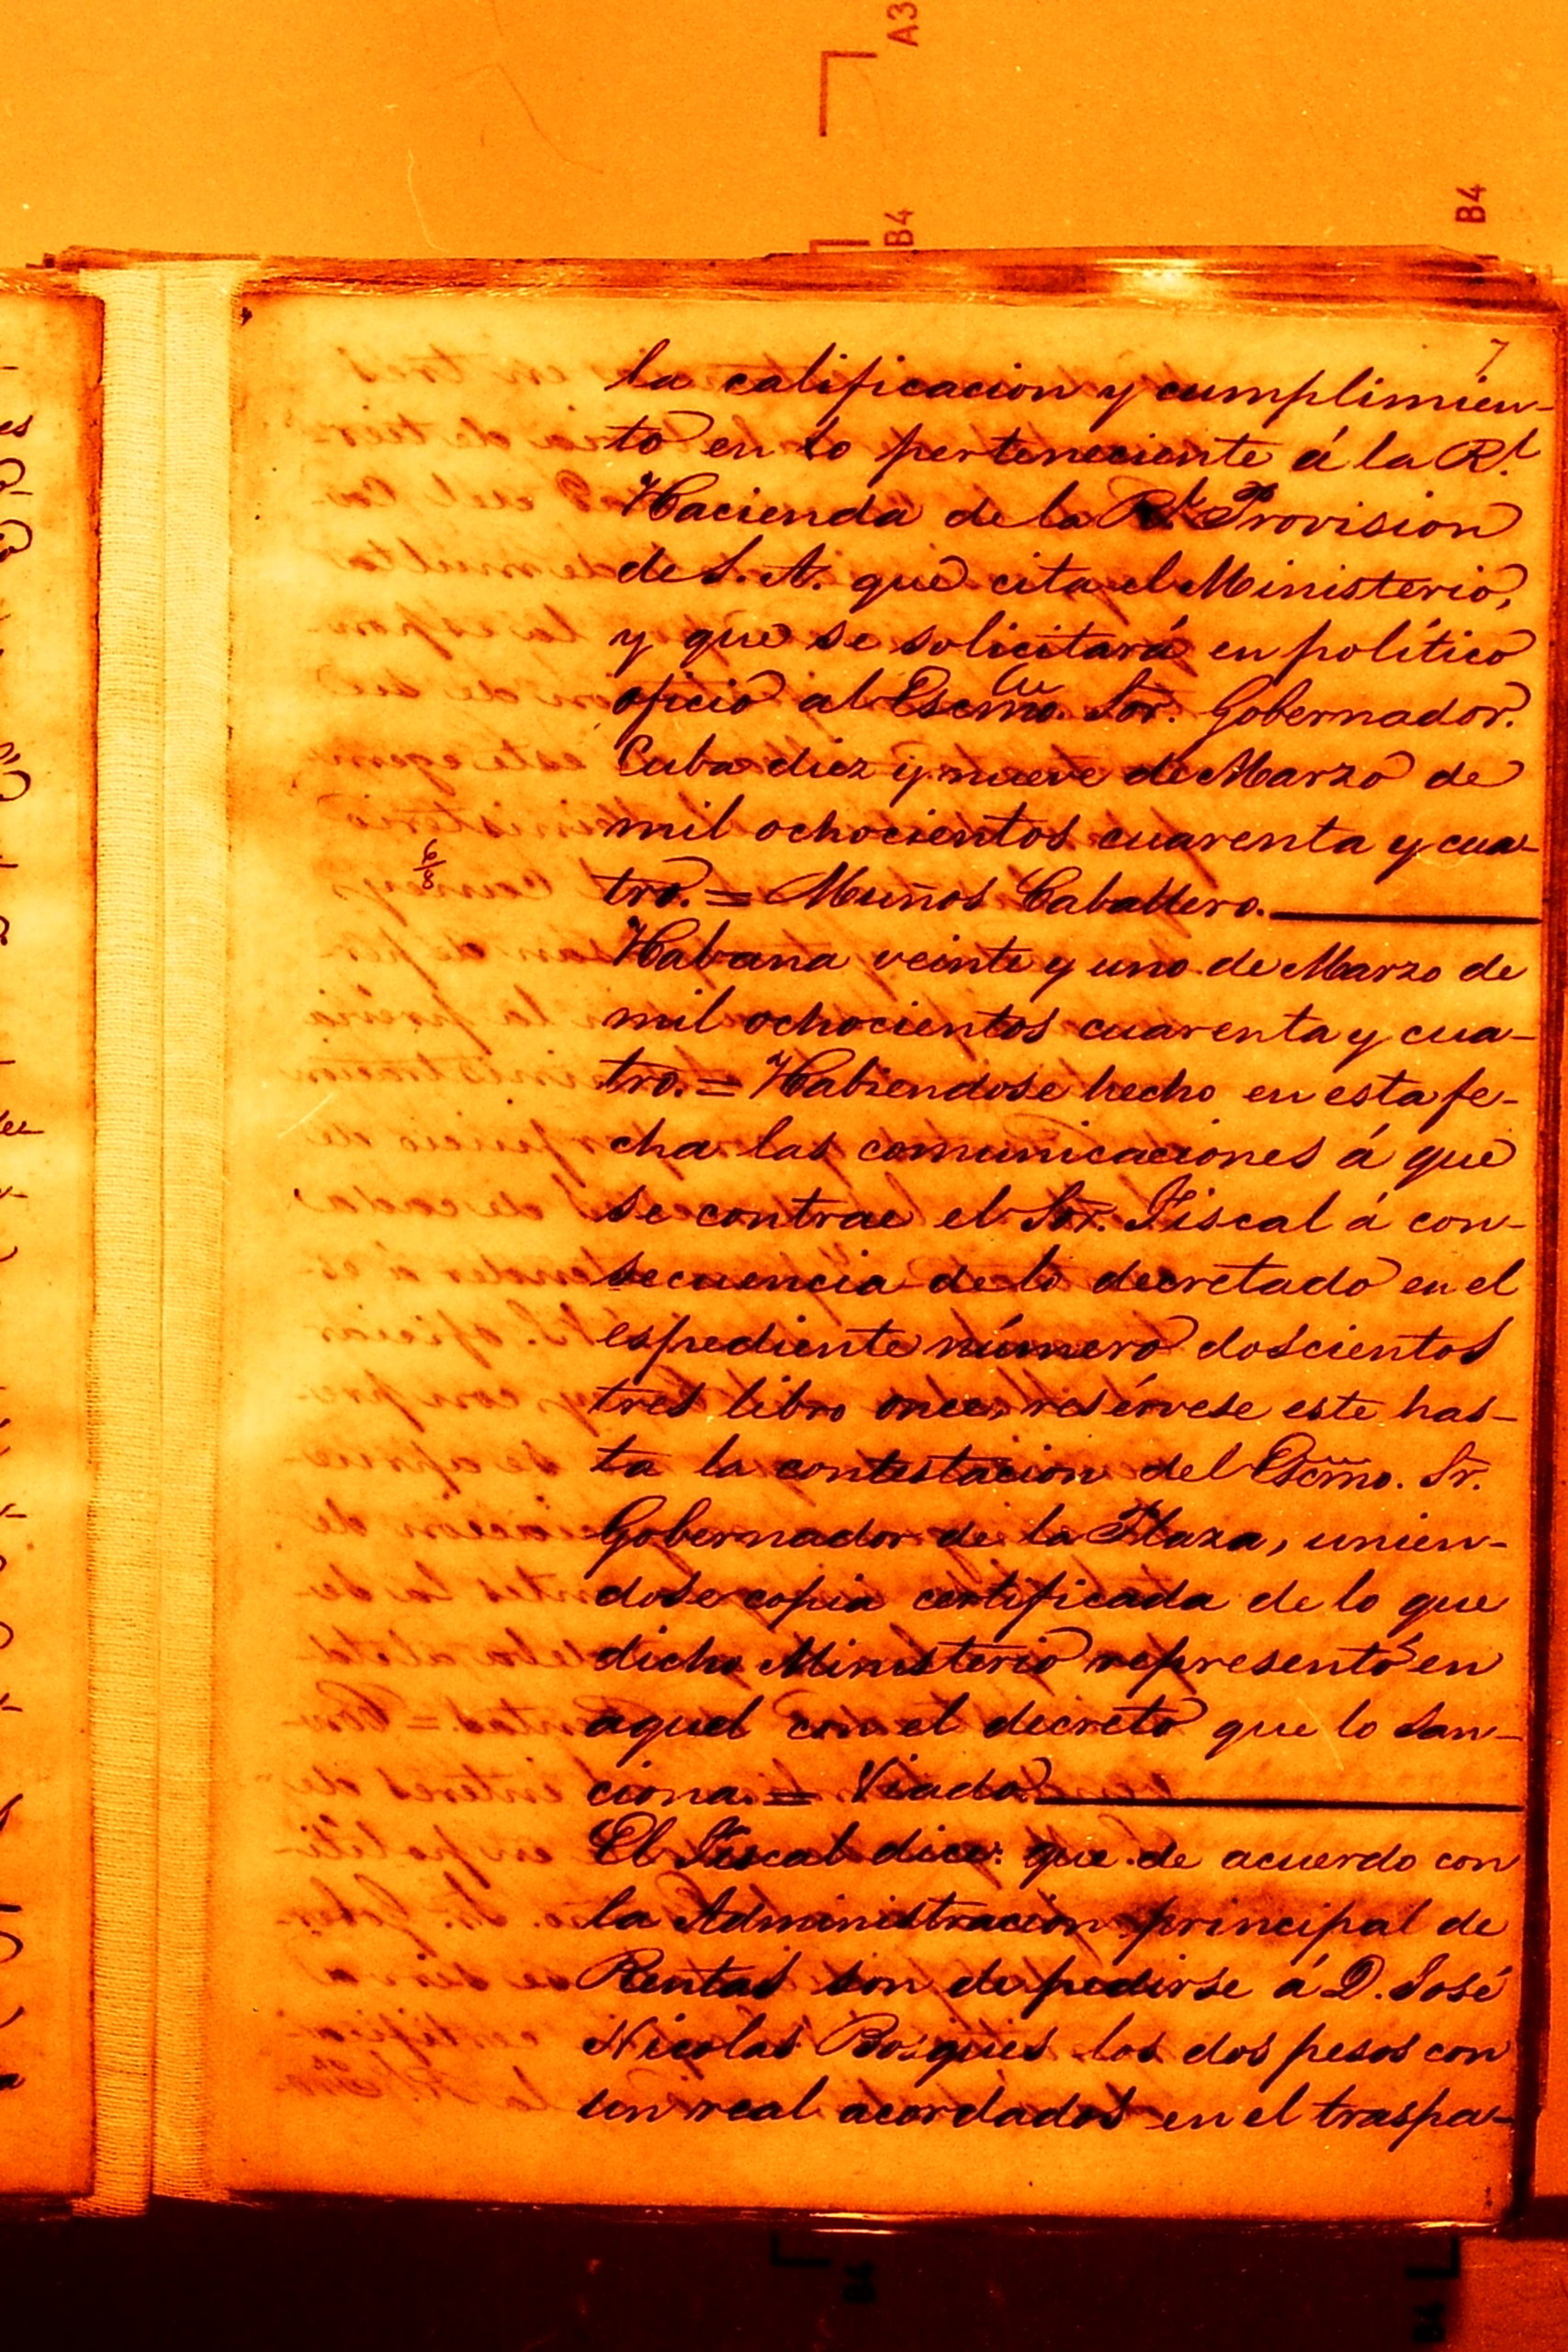 A3
B4
B4
7
la calificacion y cumplimien-
to en lo perteneciente á la Rl.
Hacienda de la Rl. Provision
de S. A. que cita el Ministerio,
y que se solicitará en político
oficio al Escmo. Sor. Gobernador.
Cuba diez y nueve de Marzo de
mil ochocientos cuarenta y cua-
6/8
tro. = Muños Caballero.
Habana veinte y uno de Marzo de
mil ochocientos cuarenta y cua-
tro. = Habiendose hecho en esta fe-
cha las comunicaciones á que
se contrae el Sor. Fiscal á con-
secuencia de lo decretado en el
espediente número doscientos
tres libro once, resérvese este has-
ta la contestacion del Escmo. Sr.
Gobernador de la Plaza, unien-
dose copia certificada de lo que
dicho Ministerio representó en
aquel con el decreto que lo san-
ciona. = Viado.
El Fiscal dice: que de acuerdo con
la Administracion principal de
Rentas son de pedirse á D. José
Nicolas Bosques los dos pesos con
un real acordados en el traspa-
B4
B4